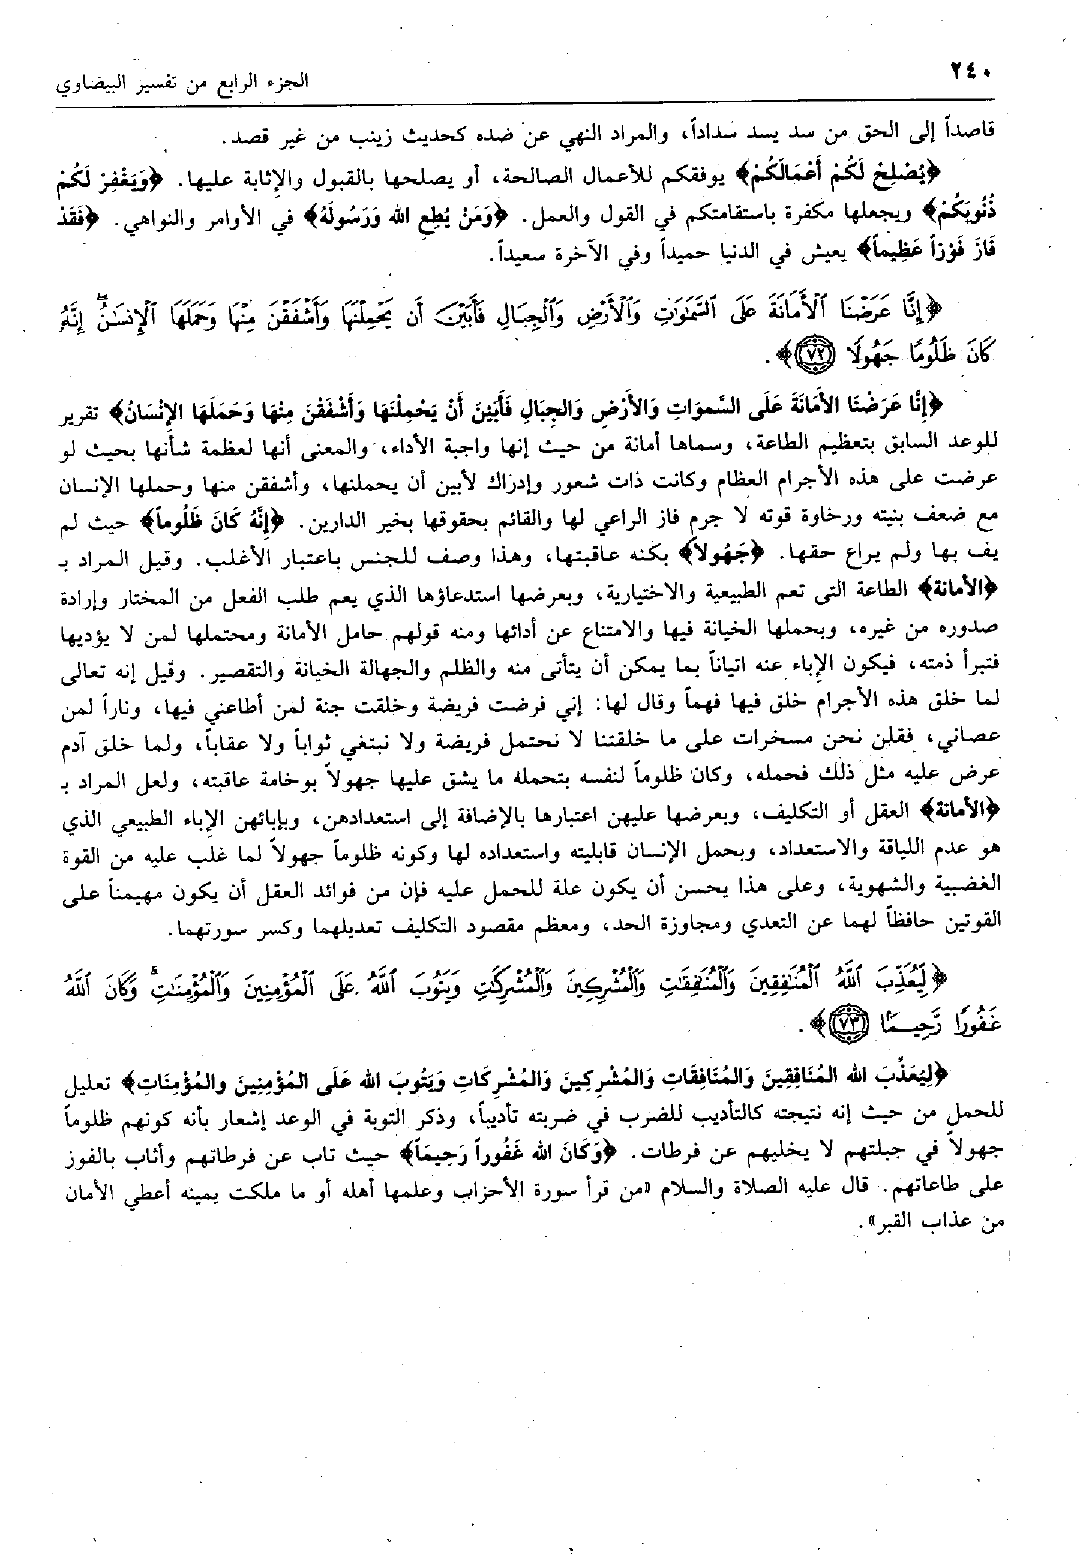 ٢٤٠
الجزء الرابع من تفسير البيضاوي
قاصداً إلى الحق من سد يسد سداداً، والمراد النهي عن ضده كحديث زينب من غير قصد.
﴿يُصْلِحْ لَكُمْ أَعْمَالَكُمْ﴾ يوفقكم للأعمال الصالحة، أو يصلحها بالقبول والإثابة عليها. ﴿وَيَغْفِرْ لَكُمْ
ذُنُوبَكُمْ﴾ ويجعلها مكفرة باستقامتكم في القول والعمل. ﴿وَمَنْ يُطِعِ الله وَرَسُولَهُ﴾ في الأوامر والنواهي. ﴿فَقَدْ
فَازَ فَوْزَاً عَظِيماً﴾ يعيش في الدنيا حميداً وفي الآخرة سعيداً.
﴿إِنَّا عَرَضْنَا ٱلْأَمَانَةَ عَلَى ٱلسَّمَٰوَٰتِ وَٱلْأَرْضِ وَٱلْجِبَالِ فَأَبَيْنَ أَن يَحْمِلْنَهَا وَأَشْفَقْنَ مِنْهَا وَحَمَلَهَا ٱلْإِنسَٰنُ ۖ إِنَّهُۥ
كَانَ ظَلُومًا جَهُولًا ﴿٧٢﴾﴾.
﴿إِنَّا عَرَضْنَا الأَمَانَةَ عَلَى السَّموَاتِ وَالأَرْضِ وَالجِبَالِ فَأَبَيْنَ أَنْ يَحْمِلْنَهَا وَأَشْفَقْنَ مِنْهَا وَحَمَلَهَا الإِنْسَانُ﴾ تقرير
للوعد السابق بتعظيم الطاعة، وسماها أمانة من حيث إنها واجبة الأداء، والمعنى أنها لعظمة شأنها بحيث لو
عرضت على هذه الأجرام العظام وكانت ذات شعور وإدراك لأبين أن يحملنها، وأشفقن منها وحملها الإنسان
مع ضعف بنيته ورخاوة قوته لا جرم فاز الراعي لها والقائم بحقوقها بخير الدارين. ﴿إِنَّهُ كَانَ ظَلُوماً﴾ حيث لم
يف بها ولم يراع حقها. ﴿جَهُولاً﴾ بكنه عاقبتها، وهذا وصف للجنس باعتبار الأغلب. وقيل المراد بـ
﴿الأمانة﴾ الطاعة التي تعم الطبيعية والاختيارية، وبعرضها استدعاؤها الذي يعم طلب الفعل من المختار وإرادة
صدوره من غيره، وبحملها الخيانة فيها والامتناع عن أدائها ومنه قولهم حامل الأمانة ومحتملها لمن لا يؤديها
فتبرأ ذمته، فيكون الإباء عنه اتياناً بما يمكن أن يتأتى منه والظلم والجهالة الخيانة والتقصير. وقيل إنه تعالى
لما خلق هذه الأجرام خلق فيها فهماً وقال لها: إني فرضت فريضة وخلقت جنة لمن أطاعني فيها، وناراً لمن
عصاني، فقلن نحن مسخرات على ما خلقتنا لا نحتمل فريضة ولا نبتغي ثواباً ولا عقاباً، ولما خلق آدم
عرض عليه مثل ذلك فحمله، وكان ظلوماً لنفسه بتحمله ما يشق عليها جهولاً بوخامة عاقبته، ولعل المراد بـ
﴿الأمانة﴾ العقل أو التكليف، وبعرضها عليهن اعتبارها بالإضافة إلى استعدادهن، وبإبائهن الإباء الطبيعي الذي
هو عدم اللياقة والاستعداد، وبحمل الإنسان قابليته واستعداده لها وكونه ظلوماً جهولاً لما غلب عليه من القوة
الغضبية والشهوية، وعلى هذا يحسن أن يكون علة للحمل عليه فإن من فوائد العقل أن يكون مهيمناً على
القوتين حافظاً لهما عن التعدي ومجاوزة الحد، ومعظم مقصود التكليف تعديلهما وكسر سورتهما.
﴿لِّيُعَذِّبَ ٱللَّهُ ٱلْمُنَٰفِقِينَ وَٱلْمُنَٰفِقَٰتِ وَٱلْمُشْرِكِينَ وَٱلْمُشْرِكَٰتِ وَيَتُوبَ ٱللَّهُ عَلَى ٱلْمُؤْمِنِينَ وَٱلْمُؤْمِنَٰتِ ۗ وَكَانَ ٱللَّهُ
غَفُورًا رَّحِيمًۢا ﴿٧٣﴾﴾.
﴿لِيُعَذِّبَ الله المُنَافِقِينَ وَالمُنَافِقَاتِ وَالمُشْرِكِينَ وَالمُشْرِكَاتِ وَيَتُوبَ الله عَلَى المُؤْمِنِينَ والمُؤْمِنَاتِ﴾ تعليل
للحمل من حيث إنه نتيجته كالتأديب للضرب في ضربته تأديباً، وذكر التوبة في الوعد إشعار بأنه كونهم ظلوماً
جهولاً في جبلتهم لا يخليهم عن فرطات. ﴿وَكَانَ الله غَفُوراً رَحِيمَاً﴾ حيث تاب عن فرطاتهم وأثاب بالفوز
على طاعاتهم. قال عليه الصلاة والسلام «من قرأ سورة الأحزاب وعلمها أهله أو ما ملكت يمينه أعطي الأمان
من عذاب القبر».